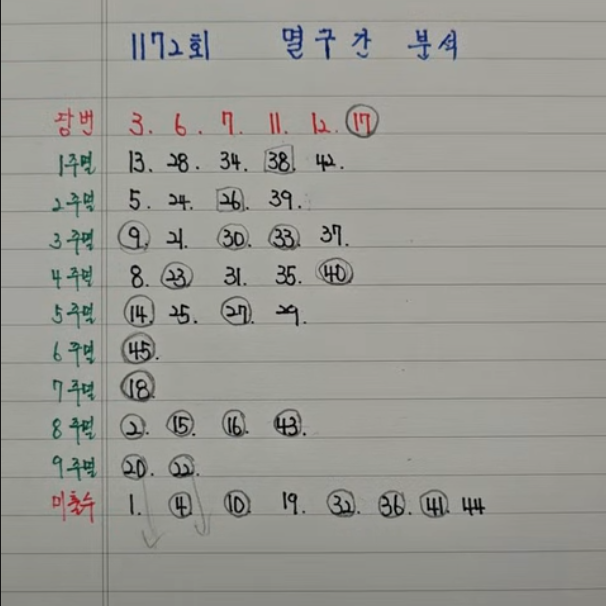 1172회 멸구간 분석
장번 3. 6. 7. 11. 12. 17
1주멸 13. 28. 34. 38. 42.
2주멸 5. 24. 26. 39.
3주멸 9. 21. 30. 33. 37.
4주멸 8. 23 31. 35. 40
5주멸 14. 25. 27. 29.
6주멸 45.
7주멸 18
8주멸 2. 15. 16. 43.
9주멸 20. 22.
미출수 1. 4 10. 19. 32. 36. 41. 44